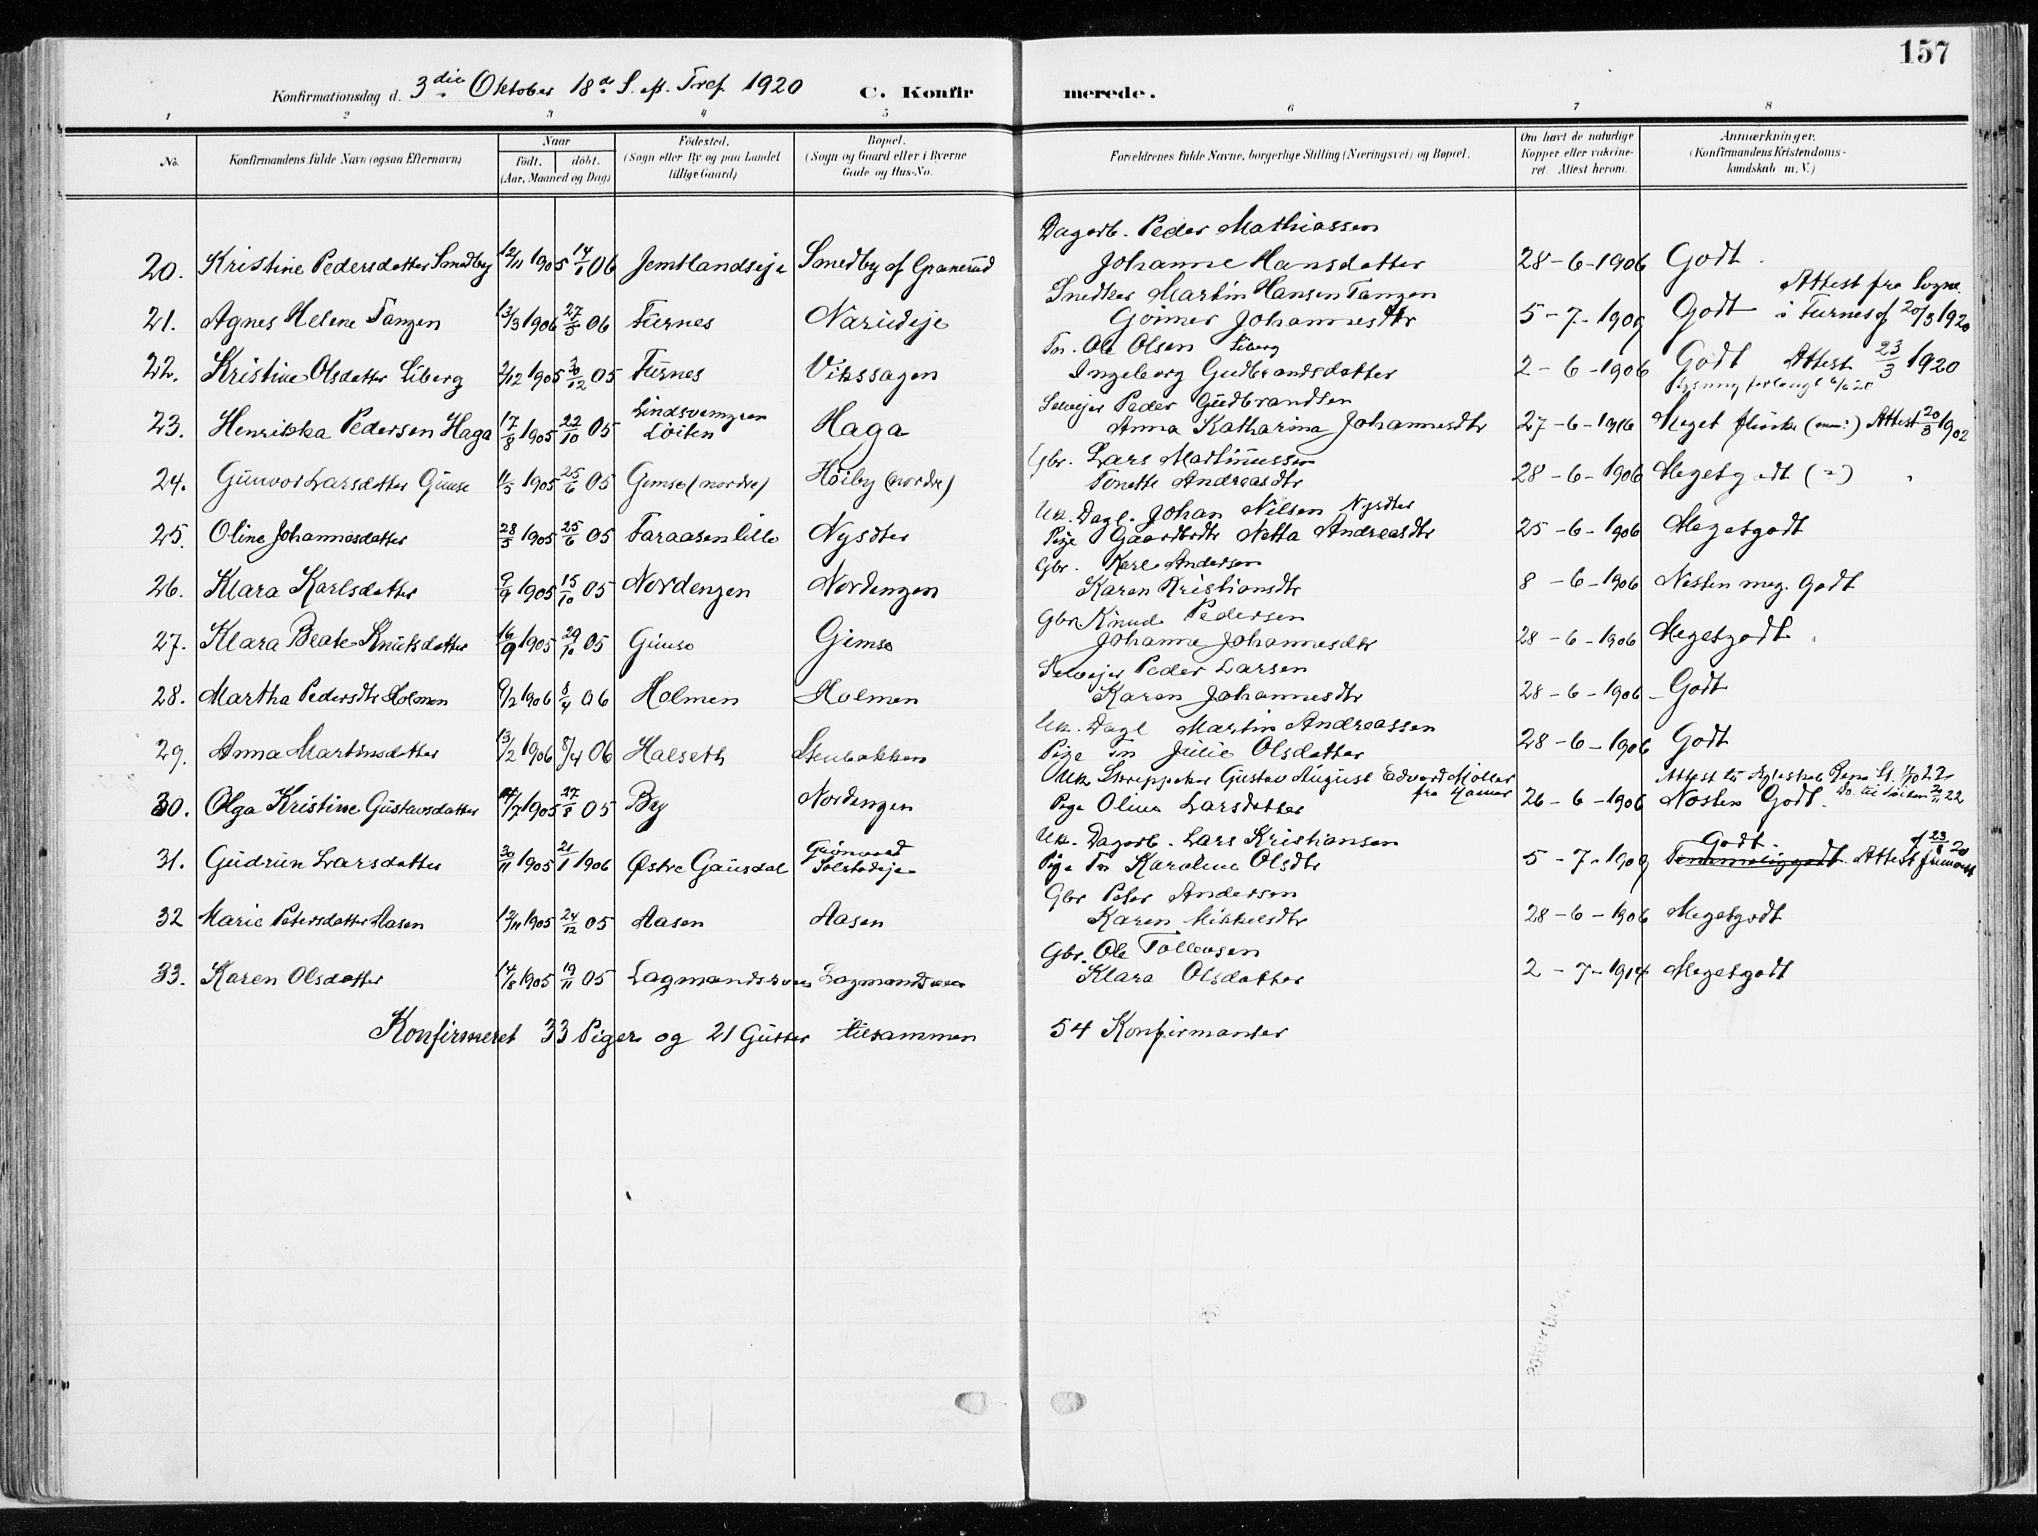 157
Konfirmationsdag d. 3die Oktober 18de S. eft. Tref 1920 C. Konfirmerede.
1 2 3 4 5 6 7 8
No. Konfirmandens fulde Navn (ogsaa Efternavn) Naar født. døbt. (Aar, Maaned og Dag) Fødested. (Sogn eller By og paa Landet tillige Gaard) Bopæl. (Sogn og Gaard eller i Byerne Gade og Hus-No. Forældrenes fulde Navne, borgerlige Stilling (Næringsvei) og Bopæl. Om havt de naturlige Kopper eller vakcineret. Attest herom. Anmærkninger. (Konfirmandens Kristendomskundskab m. V.)
Dagarb. Peder Mathiassen
20. Kristine Pedersdatter Smedby 12/11 1905 14/1 06 Jemtlandseje Smedby af Granerud Johanne Hansdatter 28-6-1906 Godt.
Snedker Martin Hansen Tangen Attest fra Sogne
21. Agnes Helene Tangen 13/3 1906 27/5 06 Furnes Narudeje Johannesdtr 5-7-1909 Godt i Furnes af 20/3 1920
Ole Olsen Liberg
22. Kristine Olsdatter Liberg 2/12 1905 30/12 05 Furnes Vikssagen Ingeborg Gudbrandsdatter 2-6-1906 Godt Attest 23/3 1920
Selvejer Peder Gudbrandsen
23. Henrikka Pedersen Haga 17/8 1905 22/10 05 Løiten Haga Anna Katharina Johannesdtr 27-6-1916 Meget Attest 20/3 1902
Gbr. Lars Martinussen
24. Gunvor Larsdatter Gimse 11/5 1905 25/6 05 Gimse (nordre) Høiby (nordre) Tonette Andreasdtr 28-6-1906 Megetgodt
Uk. Dagl. Johan Nilsen Nysdter
25. Oline Johannesdatter 28/5 1905 25/6 05 Faraasen lille Nysdter Pige Gaardbrdtr Netta Andreasdtr 25-6-1906 Megetgodt
Gbr. Karl Andersen
26. Klara Karlsdatter 9/9 1905 15/10 05 Nordengen Nordengen Karen Kristiansdtr 8-6-1906 Nesten meg. Godt
Gbr. Knud Pedersen
27. Klara Beate Knutsdatter 16/9 1905 29/10 05 Gimse Gimse Johanne Johannesdtr 28-6-1906 Megetgodt
Selvejer Peder Larsen
28. Martha Pedersdtr Holmen 9/2 1906 8/4 06 Holmen Holmen Karen Johannesdtr 28-6-1906 Godt
Uk. Dagl Martin Andreassen
29. Anna Martinsdatter 13/2 1906 8/4 06 Halseth Stenbakken Pige Tn Julie Olsdatter 28-6-1906 Godt
Uk Gustav August Edvard Møller fra Hamar
30. Olga Kristine Gustavsdatter 1905 27/8 05 By Nordengen Pige Oline Larsdatter 26-6-1906 Nesten Godt. Do. til Løiten 22
Uk. Dagarb. Lars Kristiansen Godt. af 23/8 20
31. Gudrun Larsdatter 30/11 1905 21/1 1906 Østre Gausdal Pige Tn Karoline Olsdtr 5-7-1909 Attest
Gbr Peter Andersen
32 Marie Petersdatter Aasen 12/11 1905 24/12 05 Aasen Aasen Karen Mikkelsdtr 28-6-1906 Megetgodt
Gbr. Ole Tollevsen
33. Karen Olsdatter 14/8 1905 19/11 05 Klara Olsdatter 2-7-1914 Megetgodt
Konfirmeret 33 Piger og 21 Gutter tilsammen 54 Konfirmanter